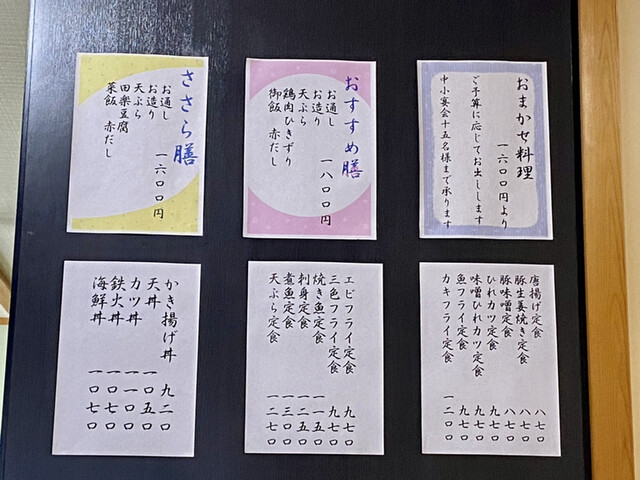 おまかせ料理
一六〇〇円より
ご予算に応じてお出しします
中小宴会十五名様まで承ります
おすすめ膳
一八〇〇円
お通し
お造り
天ぷら
鶏肉ひきずり
御飯 赤だし
ささら膳
一六〇〇円
お通し
お造り
天ぷら
田楽豆腐
菜飯 赤だし
唐揚げ定食 八七〇
豚生姜焼き定食 八七〇
豚味噌定食 八七〇
ひれカツ定食 九七〇
味噌ひれカツ定食 九七〇
魚フライ定食 九七〇
カキフライ定食 一二〇〇
エビフライ定食 九七〇
三色フライ定食 九七〇
焼き魚定食 一一五〇
刺身定食 一二五〇
煮魚定食 一三〇〇
天ぷら定食 一二七〇
かき揚げ丼 九二〇
天丼 一〇五〇
カツ丼 一一〇〇
鉄火丼 一〇七〇
海鮮丼 一〇七〇